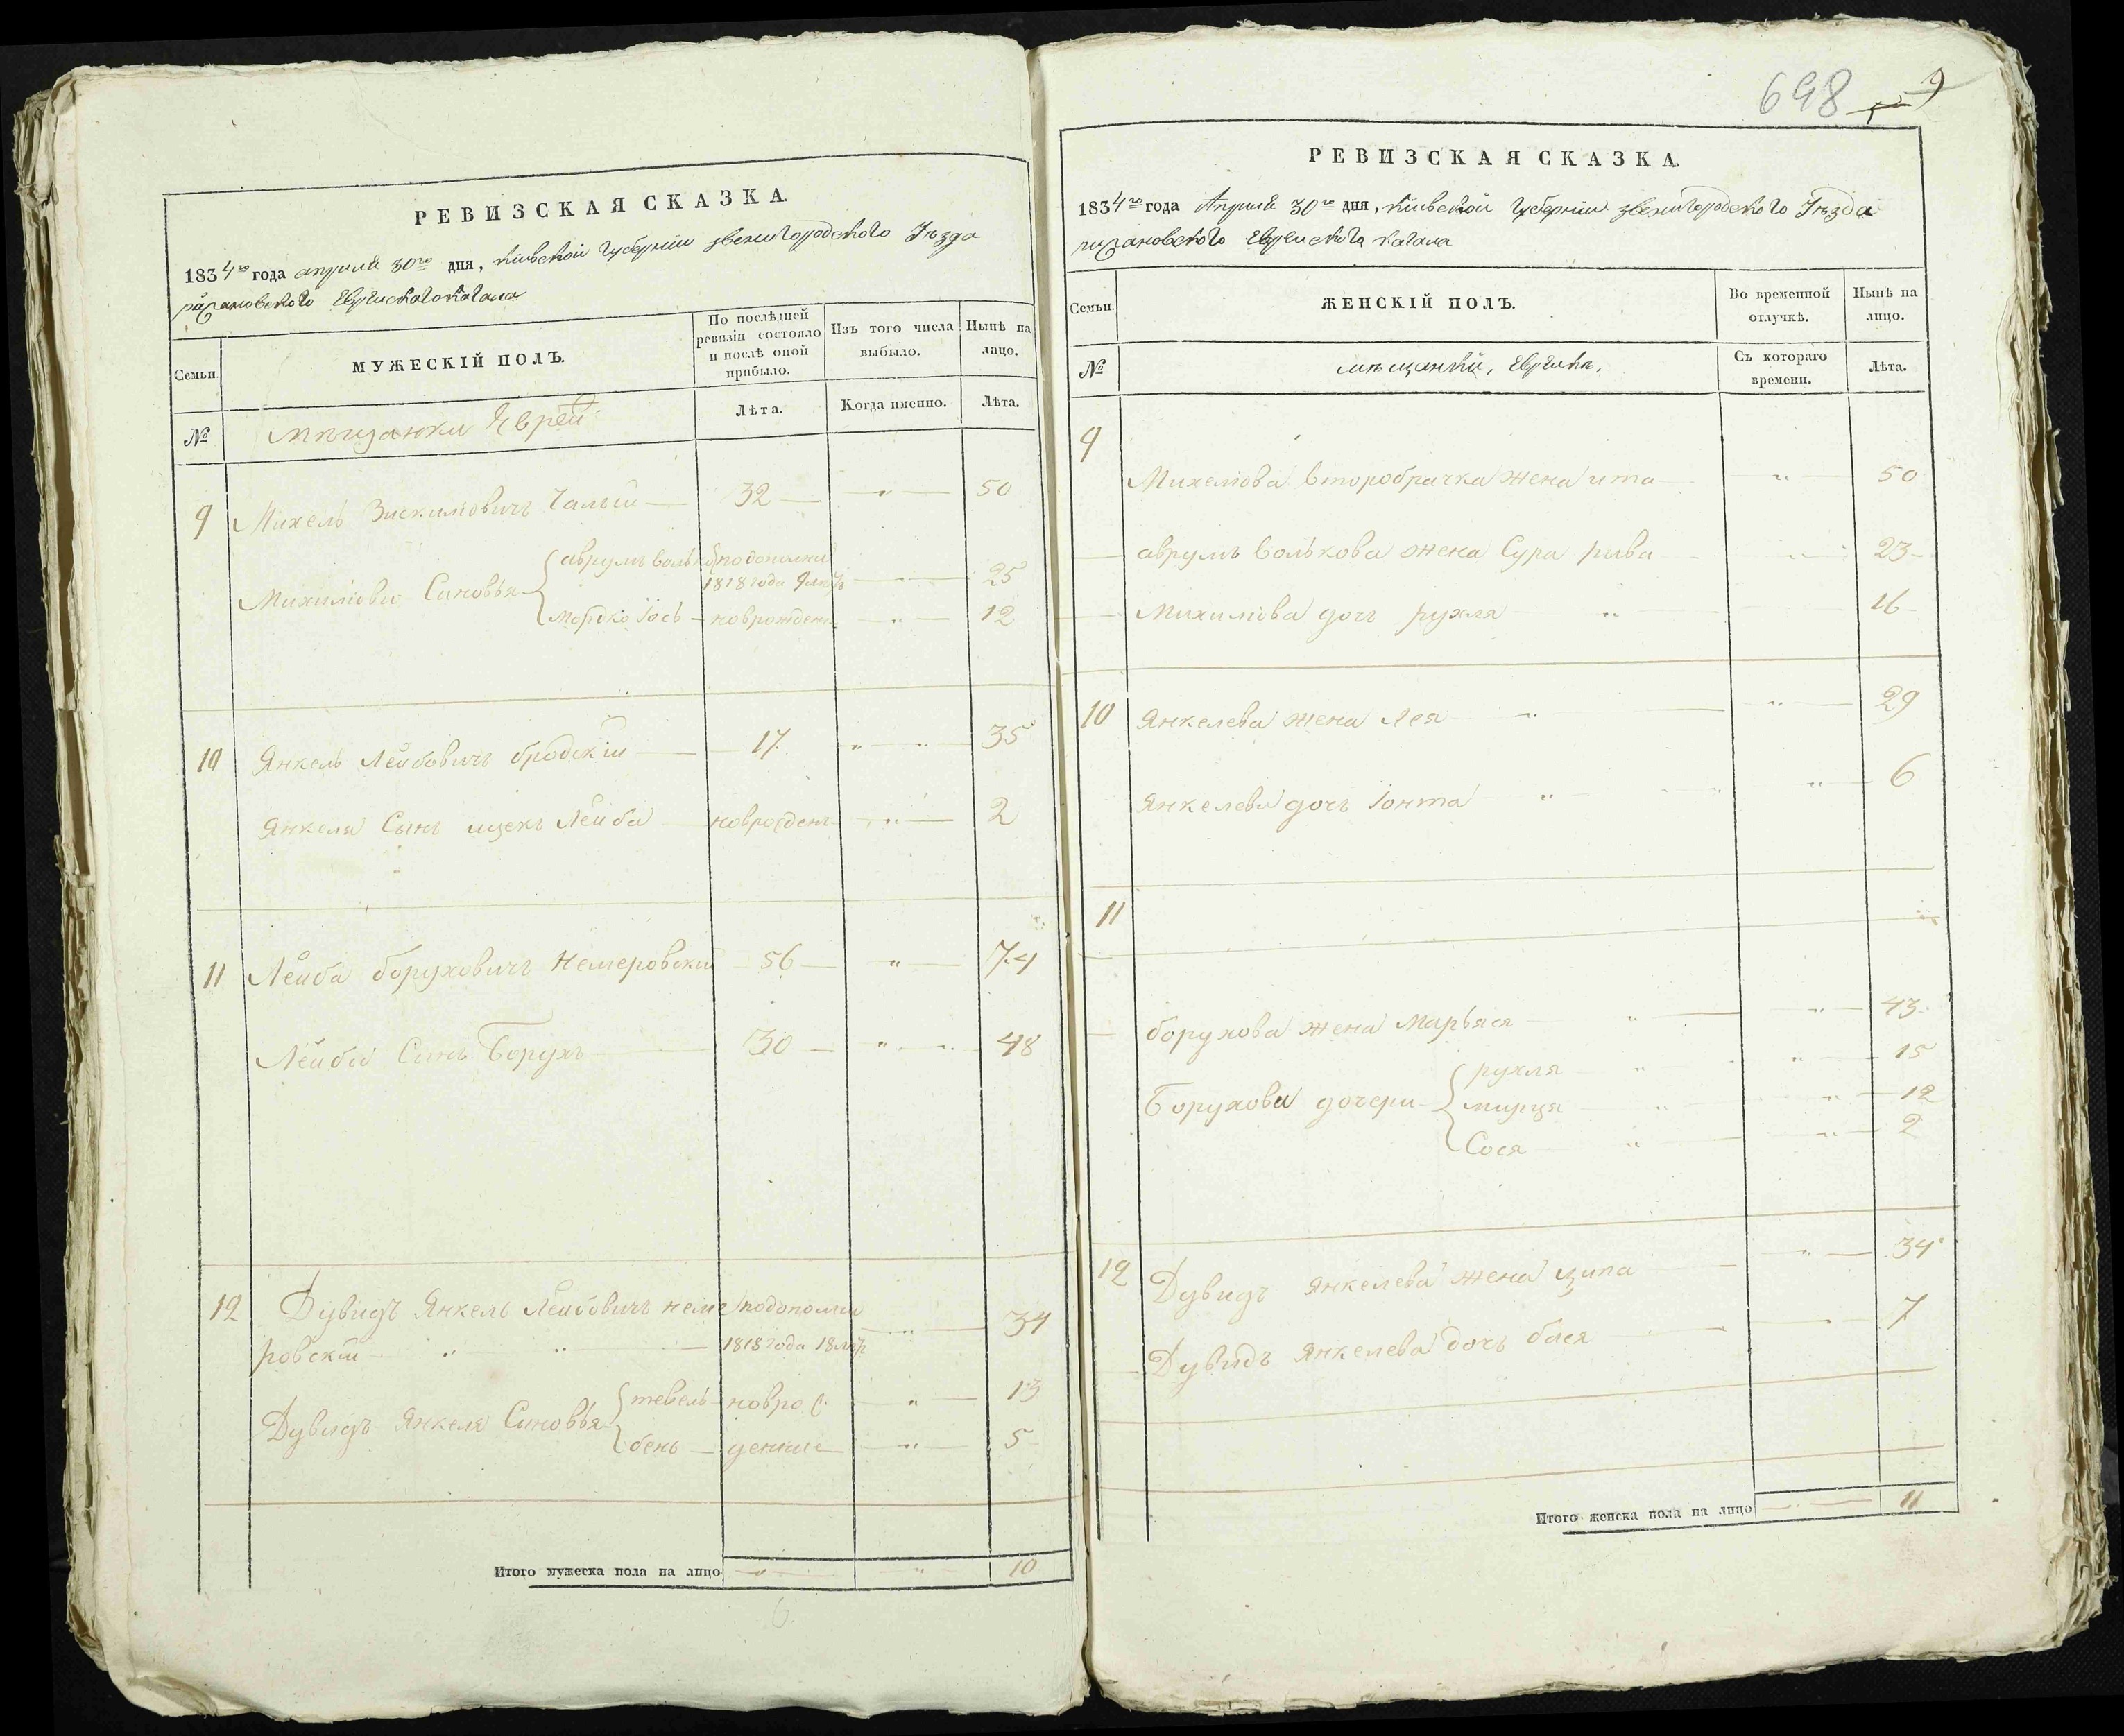 РЕВИЗСКАЯ СКАЗКА.
1834го года апреля 30го дня, Кіевской губерніи звенигородского Уезда
рыжановского Еврейского Кагала
Семьи.
МУЖЕСКІЙ ПОЛЪ.
По послѣдней ревизіи состояло и послѣ оной прибыло.
Изъ того числа выбыло.
Нынѣ на лицо.
№
мещанки Еврей
Лѣта.
Когда именно.
Лѣта.
9 Михель Зискимовичъ Чалый 32 „ 50
Михимови Синовья { аврумъ волько подополни 1818 года „ 25
мордко Іось новрожден „ 12
10 Янкель Лейбовичъ бродскій 17 „ „ 35
Янкеля Сынъ ицекъ Лейба новрожден „ 2
11 Лейба боруховичъ Немеровскій 56 „ 74
Лейби Синъ Борухъ 30 „ „ 48
12 Дувидъ Янкель Лейбовичъ неме подополни
ровскій „ „ 1818 года 18 „ 34
Дувидъ Янкеля Синовья { тевель новрож „ 13
бень денние „ 5
Итого мужеска пола на лицо „ „ 10
698
9
РЕВИЗСКАЯ СКАЗКА.
1834го года Апреля 30го дня, Кіивской губерніи звенигородского Уезда
рижановского Еврейского кагала
Семьи.
ЖЕНСКІЙ ПОЛЪ.
Во временной отлучкѣ.
Нынѣ на лицо.
№
мещанки, Еврейки,
Съ котораго времени.
Лѣта.
9
Михелова второбрачка жена ита „ 50
аврумъ волькова жена Сура рыва „ 23
Михимова дочъ рухля „ 16
10 Янкелева жена Лея „ „ 29
Янкелева дочъ Іонта „ „ 6
11
борухова жена марьяся „ „ 43
Борухови дочери { рухля „ „ 15
мирця „ „ 12
Сося „ „ 2
12 Дувидъ Янкелева жена ципа „ 34
Дувидъ Янкелева дочь бася 7
Итого женска пола на лицо „ 11